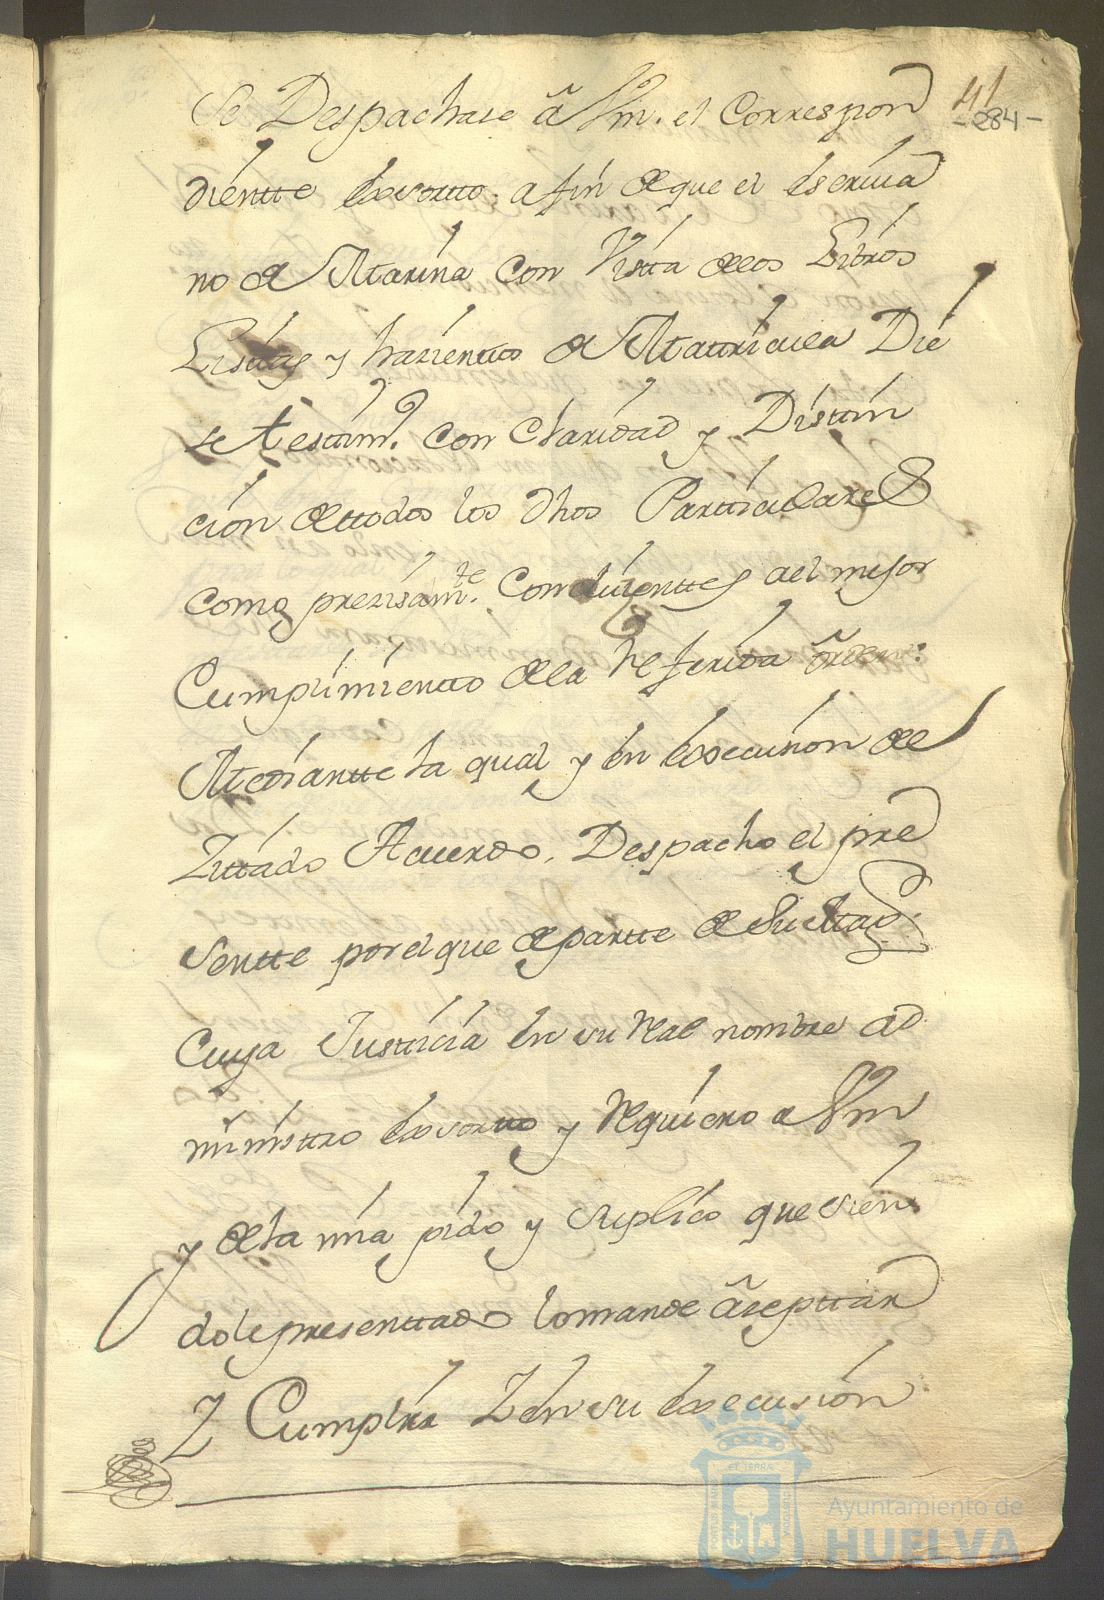 41
-284-
se Despachase â Vm. el Correspon
diente Exsorto. a fin de que el Escriva
no de Marina con Vista delos Libros
Listas y hazientto de Mattricula Dié
se testim.º con Claridad y Distin
ción de ttodos los Dhos Partticulares
como prezisam.te Concluienttes ael mejor
Cumplimientto dela Referida ôrden:
Mediantte la qual y en Execuzion del
Zittado Acuerdo. Despacho el pre
sentte por el que departte de Su Magd.
Cuya Justticia en su Real nombre ad
ministtro Exsortto y Requiero a Vm
y dela mia pido y suplico que sien
dole presenttado lo mande âzepttar
Z Cumplir Z en su Execusión
Ayuntamiento de
HUELVA